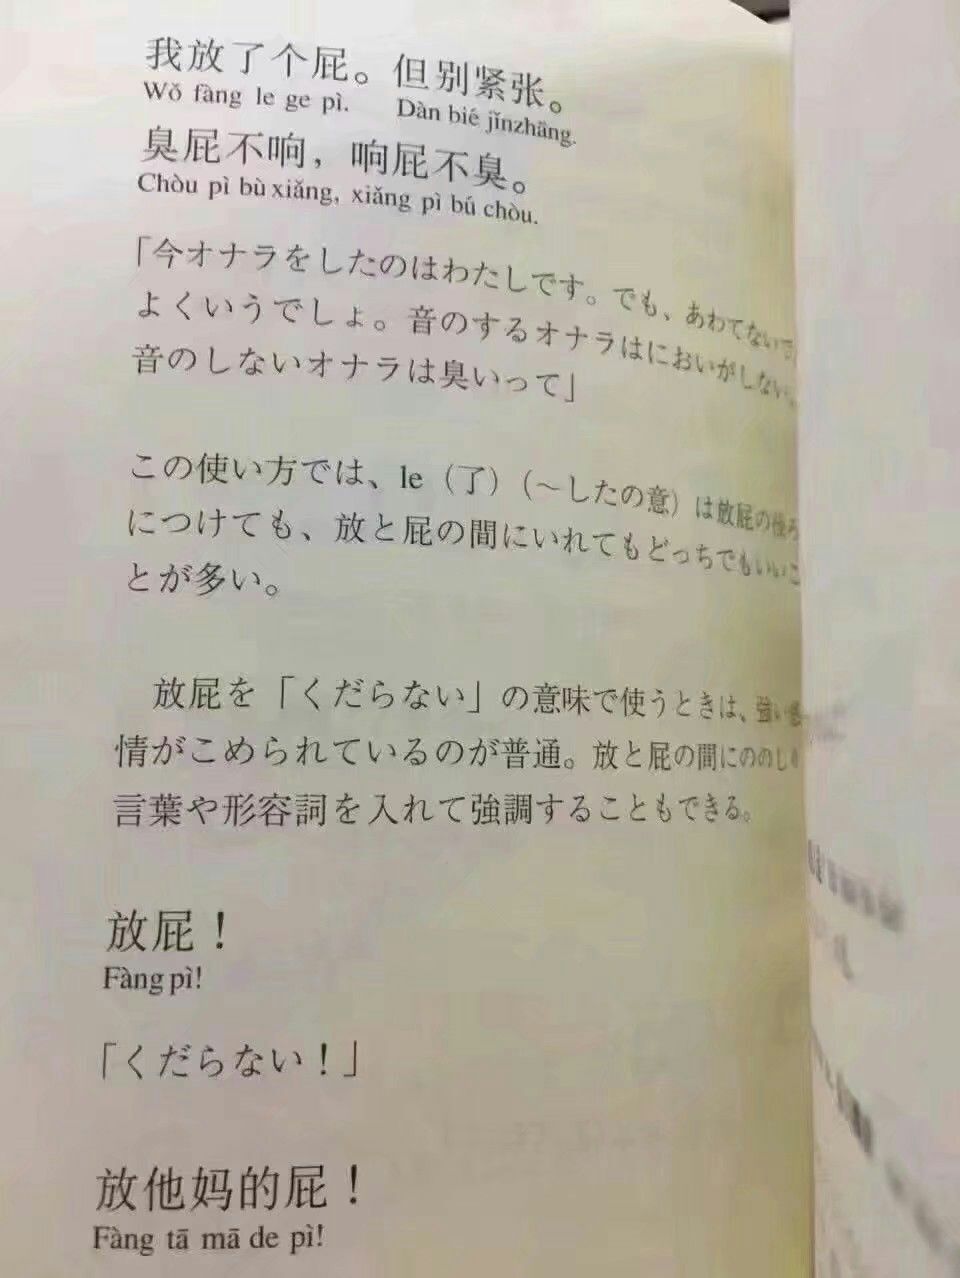 我放了个屁。但别紧张。
Wǒ fàng le ge pì. Dàn bié jǐnzhāng.
臭屁不响，响屁不臭。
Chòu pì bù xiǎng, xiǎng pì bú chòu.
「今オナラをしたのはわたしです。でも、あわてないで、
よくいうでしょ。音のするオナラはにおいがしない、
音のしないオナラは臭いって」
この使い方では、le（了）（～したの意）は放屁の後ろ
につけても、放と屁の間にいれてもどっちでもいいこ
とが多い。
放屁を「くだらない」の意味で使うときは、強い感
情がこめられているのが普通。放と屁の間にののしり
言葉や形容詞を入れて強調することもできる。
放屁！
Fàng pì!
「くだらない！」
放他妈的屁！
Fàng tā mā de pì!